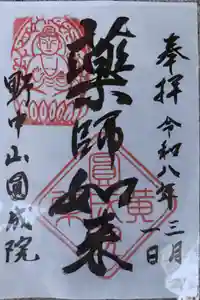 奉拝 令和八年三月一日
薬師如来
野中山圓成院